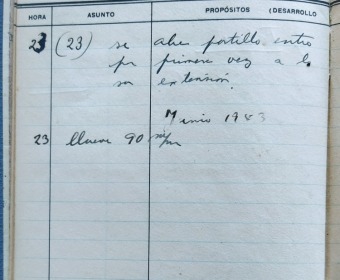 HORA ASUNTO PROPÓSITOS (DESARROLLO
23 (23) se abre portillo entro
por primera vez a
extensión.
1943
23 llueve 90